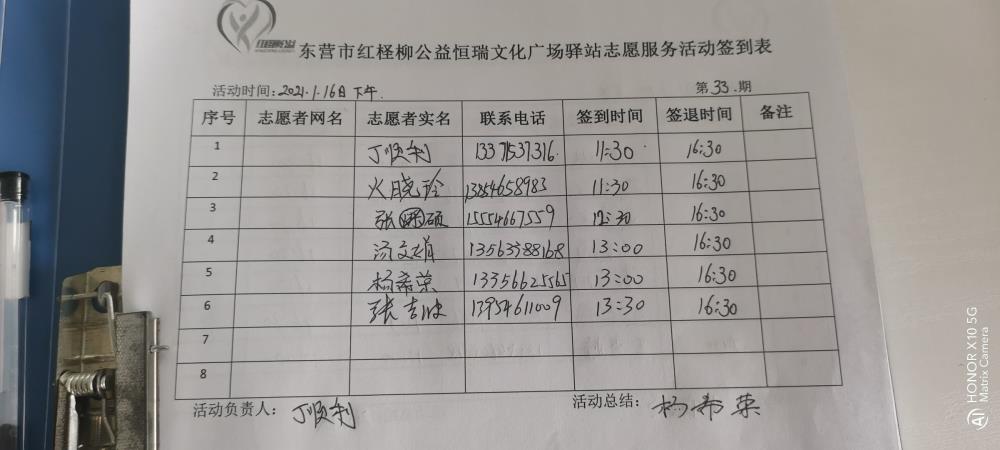 东营市红柽柳公益恒瑞文化广场驿站志愿服务活动签到表
活动时间：2021.1.16日下午. 第33.期
序号 志愿者网名 志愿者实名 联系电话 签到时间 签退时间 备注
1 丁顺利 13371537316. 11:30 16:30
2 火晓玲 13854658983 11:30 16:30
3 张 硕 15554667559 12:30 16:30
4 汤文娟 13563388168 13:00 16:30
5 杨希荣 13356625565 13:00 16:30
6 张吉 13954611009 13:30 16:30
7
8
活动负责人：丁顺利 活动总结：杨希荣
HONOR X10 5G
Matrix Camera
AI